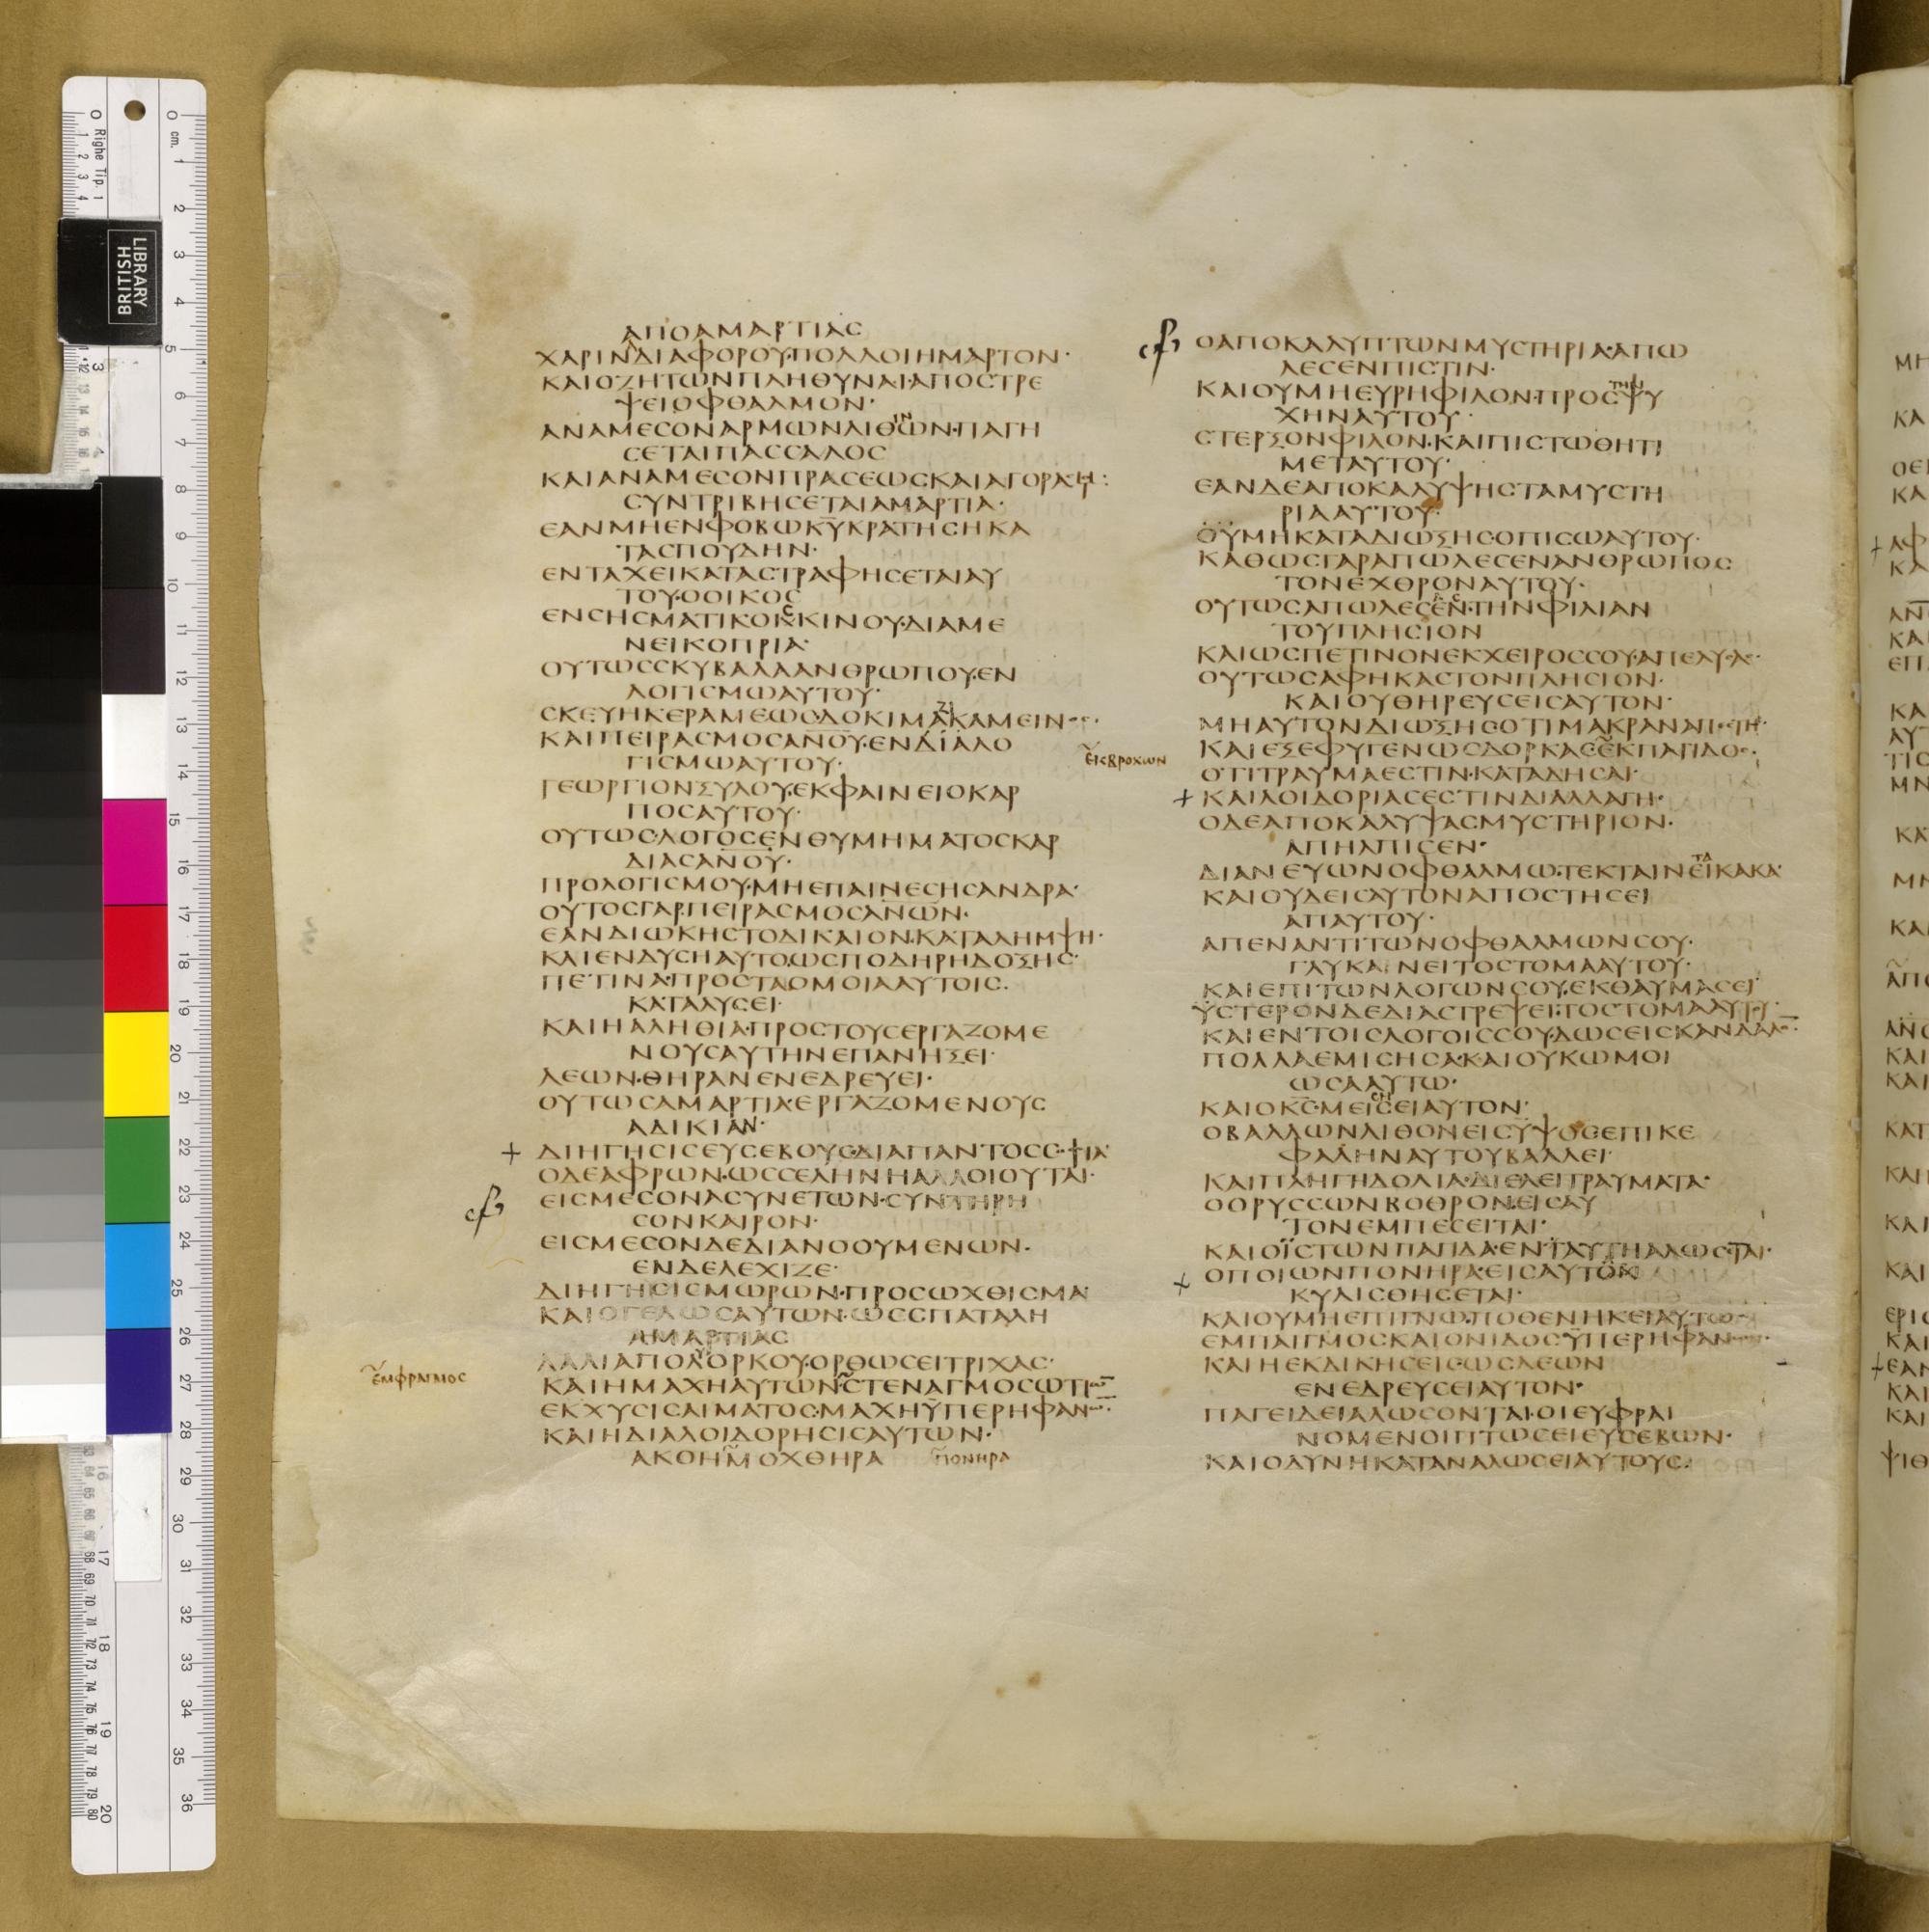 ΑΠΟΑΜΑΡΤΙΑϹ
ΧΑΡΙΝΔΙΑΦΟΡΟΥ·ΠΟΛΛΟΙΗΜΑΡΤΟΝ·
ΚΑΙΟΖΗΤΩΝΠΛΗΘΥΝΑΙ·ΑΠΟϹΤΡΕ
ΨΕΙΟΦΘΑΛΜΟΝ·
ΑΝΑΜΕϹΟΝΑΡΜΩΝΛΙΘΩΝ·ΠΑΓΗ
ϹΕΤΑΙΠΑϹϹΑΛΟϹ
ΚΑΙΑΝΑΜΕϹΟΝΠΡΑϹΕΩϹΚΑΙΑΓΟΡΑϹΗ:
ϹΥΝΤΡΙΒΗϹΕΤΑΙΑΜΑΡΤΙΑ·
ΕΑΝΜΗΕΝΦΟΒΩΚΥΚΡΑΤΗϹΗΚΑ
ΤΑϹΠΟΥΔΗΝ·
ΕΝΤΑΧΕΙΚΑΤΑϹΤΡΑΦΗϹΕΤΑΙΑΥ
ΤΟΥ·ΟΟΙΚΟϹ
ΕΝϹΗϹΜΑΤΙΚΟΚΚΙΝΟΥ·ΔΙΑΜΕ
ΝΕΙΚΟΠΡΙΑ·
ΟΥΤΩϹϹΚΥΒΑΛΑΑΝΘΡΩΠΟΥ·ΕΝ
ΛΟΓΙϹΜΩΑΥΤΟΥ·
ϹΚΕΥΗΚΕΡΑΜΕΩϹ·ΔΟΚΙΜΑΚΑΜΕΙΝ
ΚΑΙΠΕΙΡΑϹΜΟϹΑΝΟΥ·ΕΝΔΙΑΛΟ
ΓΙϹΜΩΑΥΤΟΥ·
ΓΕΩΡΓΙΟΝΞΥΛΟΥ·ΕΚΦΑΙΝΕΙΟΚΑΡ
ΠΟϹΑΥΤΟΥ·
ΟΥΤΩϹ·ΛΟΓΟϹΕΝΘΥΜΗΜΑΤΟϹΚΑΡ
ΔΙΑϹΑΝΟΥ·
ΠΡΟΛΟΓΙϹΜΟΥ·ΜΗΕΠΑΙΝΕϹΗϹΑΝΔΡΑ·
ΟΥΤΟϹΓΑΡ·ΠΕΙΡΑϹΜΟϹΑΝΩΝ·
ΕΑΝΔΙΩΚΗϹΤΟΔΙΚΑΙΟΝ·ΚΑΤΑΛΗΜΨΗ·
ΚΑΙΕΝΔΥϹΗΑΥΤΟ·ΩϹΠΟΔΗΡΗΔΟΞΗϹ·
ΠΕΤΙΝΑ·ΠΡΟϹΤΑΟΜΟΙΑΑΥΤΟΙϹ·
ΚΑΤΑΛΥϹΕΙ·
ΚΑΙΗΑΛΗΘΙΑ·ΠΡΟϹΤΟΥϹΕΡΓΑΖΟΜΕ
ΝΟΥϹΑΥΤΗΝΕΠΑΝΗΞΕΙ·
ΛΕΩΝ·ΘΗΡΑΝΕΝΕΔΡΕΥΕΙ·
ΟΥΤΩϹΑΜΑΡΤΙΑ·ΕΡΓΑΖΟΜΕΝΟΥϹ
ΑΔΙΚΙΑΝ·
ΔΙΗΓΗϹΙϹΕΥϹΕΒΟΥϹ·ΔΙΑΠΑΝΤΟϹϹΟΦΙΑ
ΟΔΕΑΦΡΩΝ·ΩϹϹΕΛΗΝΗΑΛΛΟΙΟΥΤΑΙ·
ΕΙϹΜΕϹΟΝΑϹΥΝΕΤΩΝ·ϹΥΝΤΗΡΗ
ϹΟΝΚΑΙΡΟΝ·
ΕΙϹΜΕϹΟΝΔΕΔΙΑΝΟΟΥΜΕΝΩΝ·
ΕΝΔΕΛΕΧΙΖΕ·
ΔΙΗΓΗϹΙϹΜΩΡΩΝ·ΠΡΟϹΩΧΘΙϹΜΑ
ΚΑΙΟΓΕΛΩϹΑΥΤΩΝ·ΩϹϹΠΑΤΑΛΗ
ΑΜΑΡΤΙΑϹ
ΛΑΛΙΑΠΟΛΥΟΡΚΟΥ·ΟΡΘΩϹΕΙΤΡΙΧΑϹ·
ΚΑΙΗΜΑΧΗΑΥΤΩΝ·ϹΤΕΝΑΓΜΟϹΩΤΙΩ
ΕΜΦΡΑΓΜΟϹ
ΕΚΧΥϹΙϹΑΙΜΑΤΟϹ·ΜΑΧΗΫΠΕΡΗΦΑΝΩ·
ΚΑΙΗΔΙΑΛΟΙΔΟΡΗϹΙϹΑΥΤΩΝ·
ΑΚΟΗΜΟΧΘΗΡΑ ΠΟΝΗΡΑ
ΟΑΠΟΚΑΛΥΠΤΩΝΜΥϹΤΗΡΙΑ·ΑΠΩ
ΛΕϹΕΝΠΙϹΤΙΝ·
ΚΑΙΟΥΜΗΕΥΡΗΦΙΛΟΝ·ΠΡΟϹΤΗΝΨΥ
ΧΗΝΑΥΤΟΥ·
ϹΤΕΡΞΟΝΦΙΛΟΝ·ΚΑΙΠΙϹΤΩΘΗΤΙ
ΜΕΤΑΥΤΟΥ·
ΕΑΝΔΕΑΠΟΚΑΛΥΨΗϹΤΑΜΥϹΤΗ
ΡΙΑΑΥΤΟΥ·
ΟΥΜΗΚΑΤΑΔΙΩΞΗϹΟΠΙϹΩΑΥΤΟΥ·
ΚΑΘΩϹΓΑΡΑΠΩΛΕϹΕΝΑΝΘΡΩΠΟϹ
ΤΟΝΕΧΘΡΟΝΑΥΤΟΥ·
ΟΥΤΩϹΑΠΩΛΕϹΕΝ·ΤΗΝΦΙΛΙΑΝ
ΤΟΥΠΛΗϹΙΟΝ
ΚΑΙΩϹΠΕΤΙΝΟΝΕΚΧΕΙΡΟϹϹΟΥ·ΑΠΕΛΥϹΑϹ·
ΟΥΤΩϹΑΦΗΚΑϹΤΟΝΠΛΗϹΙΟΝ·
ΚΑΙΟΥΘΗΡΕΥϹΕΙϹΑΥΤΟΝ·
ΜΗΑΥΤΟΝΔΙΩΞΗϹ·ΟΤΙΜΑΚΡΑΝ
ΚΑΙΕΞΕΦΥΓΕΝΩϹΔΟΡΚΑϹΕΚΠΑΓΙΔΟϹ·
ΕΙϹΒΡΟΧΩΝ
ΟΤΙΤΡΑΥΜΑΕϹΤΙΝ·ΚΑΤΑΔΗϹΑΙ·
ΚΑΙΛΟΙΔΟΡΙΑϹΕϹΤΙΝΔΙΑΛΛΑΓΗ·
ΟΔΕΑΠΟΚΑΛΥΨΑϹΜΥϹΤΗΡΙΟΝ·
ΑΠΗΛΠΙϹΕΝ·
ΔΙΑΝΕΥΩΝΟΦΘΑΛΜΩ·ΤΕΚΤΑΙΝΕΙΚΑΚΑ·
ΚΑΙΟΥΔΕΙϹΑΥΤΟΝΑΠΟϹΤΗϹΕΙ
ΑΠΑΥΤΟΥ·
ΑΠΕΝΑΝΤΙΤΩΝΟΦΘΑΛΜΩΝϹΟΥ·
ΓΛΥΚΑΝΕΙΤΟϹΤΟΜΑΑΥΤΟΥ·
ΚΑΙΕΠΙΤΩΝΛΟΓΩΝϹΟΥ·ΕΚΘΑΥΜΑϹΕΙ·
ΫϹΤΕΡΟΝΔΕΔΙΑϹΤΡΕΨΕΙ·ΤΟϹΤΟΜΑΑΥΤΟΥ·
ΚΑΙΕΝΤΟΙϹΛΟΓΟΙϹϹΟΥ·ΔΩϹΕΙϹΚΑΝΔΑΛΟ·
ΠΟΛΛΑΕΜΙϹΗϹΑ·ΚΑΙΟΥΚΩΜΟΙ
ΩϹΑΑΥΤΩ·
ΚΑΙΟΚϹ·ΜΕΙϹΕΙΑΥΤΟΝ·
ΟΒΑΛΛΩΝΛΙΘΟΝΕΙϹΥΨΟϹ·ΕΠΙΚΕ
ΦΑΛΗΝΑΥΤΟΥΒΑΛΛΕΙ·
ΚΑΙΠΛΗΓΗΔΟΛΙΑ·ΔΙΕΛΕΙΤΡΑΥΜΑΤΑ·
ΟΟΡΥϹϹΩΝΒΟΘΡΟΝ·ΕΙϹΑΥ
ΤΟΝΕΜΠΕϹΕΙΤΑΙ·
ΚΑΙΟΪϹΤΩΝΠΑΓΙΔΑ·ΕΝΤΑΥΤΗΑΛΩϹΕΤΑΙ·
ΟΠΟΙΩΝΠΟΝΗΡΑ·ΕΙϹΑΥΤΟΝ
ΚΥΛΙϹΘΗϹΕΤΑΙ·
ΚΑΙΟΥΜΗΕΠΙΓΝΩ·ΠΟΘΕΝΗΚΕΙΑΥΤΩ
ΕΜΠΑΙΓΜΟϹΚΑΙΟΝΙΔΟϹΫΠΕΡΗΦΑΝΩ·
ΚΑΙΗΕΚΔΙΚΗϹΕΙϹΩϹΛΕΩΝ
ΕΝΕΔΡΕΥϹΕΙΑΥΤΟΝ·
ΠΑΓΕΙΔΕΙΑΛΩϹΟΝΤΑΙ·ΟΙΕΥΦΡΑΙ
ΝΟΜΕΝΟΙΠΤΩϹΕΙΕΥϹΕΒΩΝ·
ΚΑΙΟΔΥΝΗΚΑΤΑΝΑΛΩϹΕΙΑΥΤΟΥϹ·
BRITISH
LIBRARY